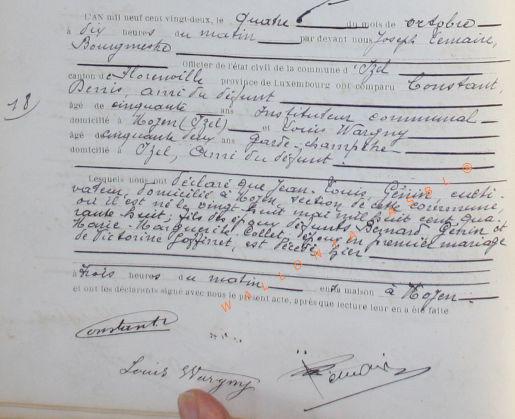 L'AN mil neuf cent vingt-deux, le quatre du mois de octobre
à dix heures du matin par devant nous Joseph Lemaire,
Bourgmestre
Officier de l'état civil de la commune d'Izel
canton de Florenville province de Luxembourg ont comparu Constant,
Denis, ami du défunt
âgé de cinquante ans Instituteur communal
18)
domicilié à Moyen (Izel) et Louis Wargny
âgé cinquante deux ans garde-champêtre
domicilié à Izel, ami du défunt
Lesquels nous ont déclaré que Jean Louis Génin, culti-
vateur, domicilié à Moyen, section de cette commune,
où il est né le vingt huit mai mil huit cent qua-
rante huit, fils des époux défunts Bernard Génin et
Marie-Marguerite Collet, époux en premier mariage
de Victorine Goffinet, est décédé hier
à trois heures du matin en sa maison à Moyen
et ont les déclarants signé avec nous le présent acte, après que lecture leur en a été faite
Constant
Louis Wargny
Lemaire
WALLONIA ASBL ©